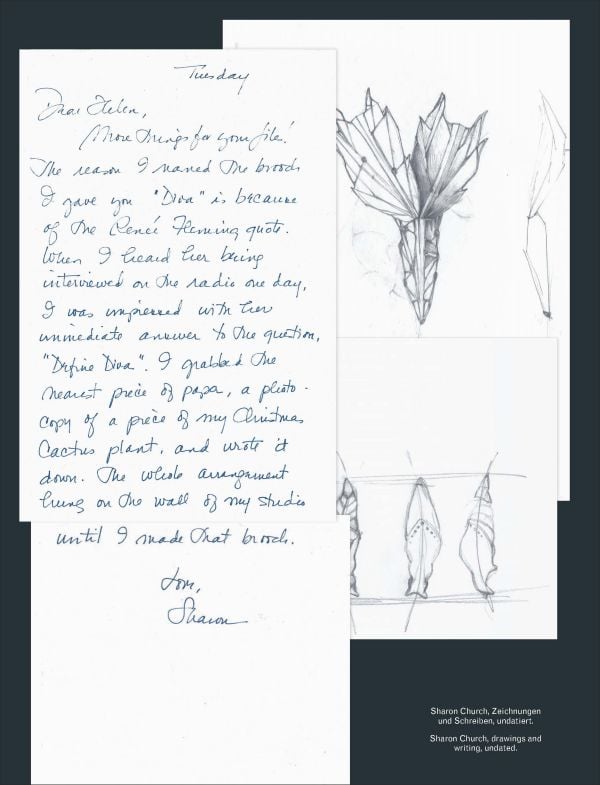 Tuesday
Dear Helen,
More things for your file!
The reason I named the brooch
I gave you "Diva" is because
of the Reneé Fleming quote.
When I heard her being
interviewed on the radio one day,
I was impressed with her
immediate answer to the question,
"Define Diva". I grabbed the
nearest piece of paper, a photo-
copy of a piece of my Christmas
Cactus plant, and wrote it
down. The whole arrangement
hung on the wall of my studio
until I made that brooch.
Love,
Sharon
Sharon Church, Zeichnungen
und Schreiben, undatiert.
Sharon Church, drawings and
writing, undated.